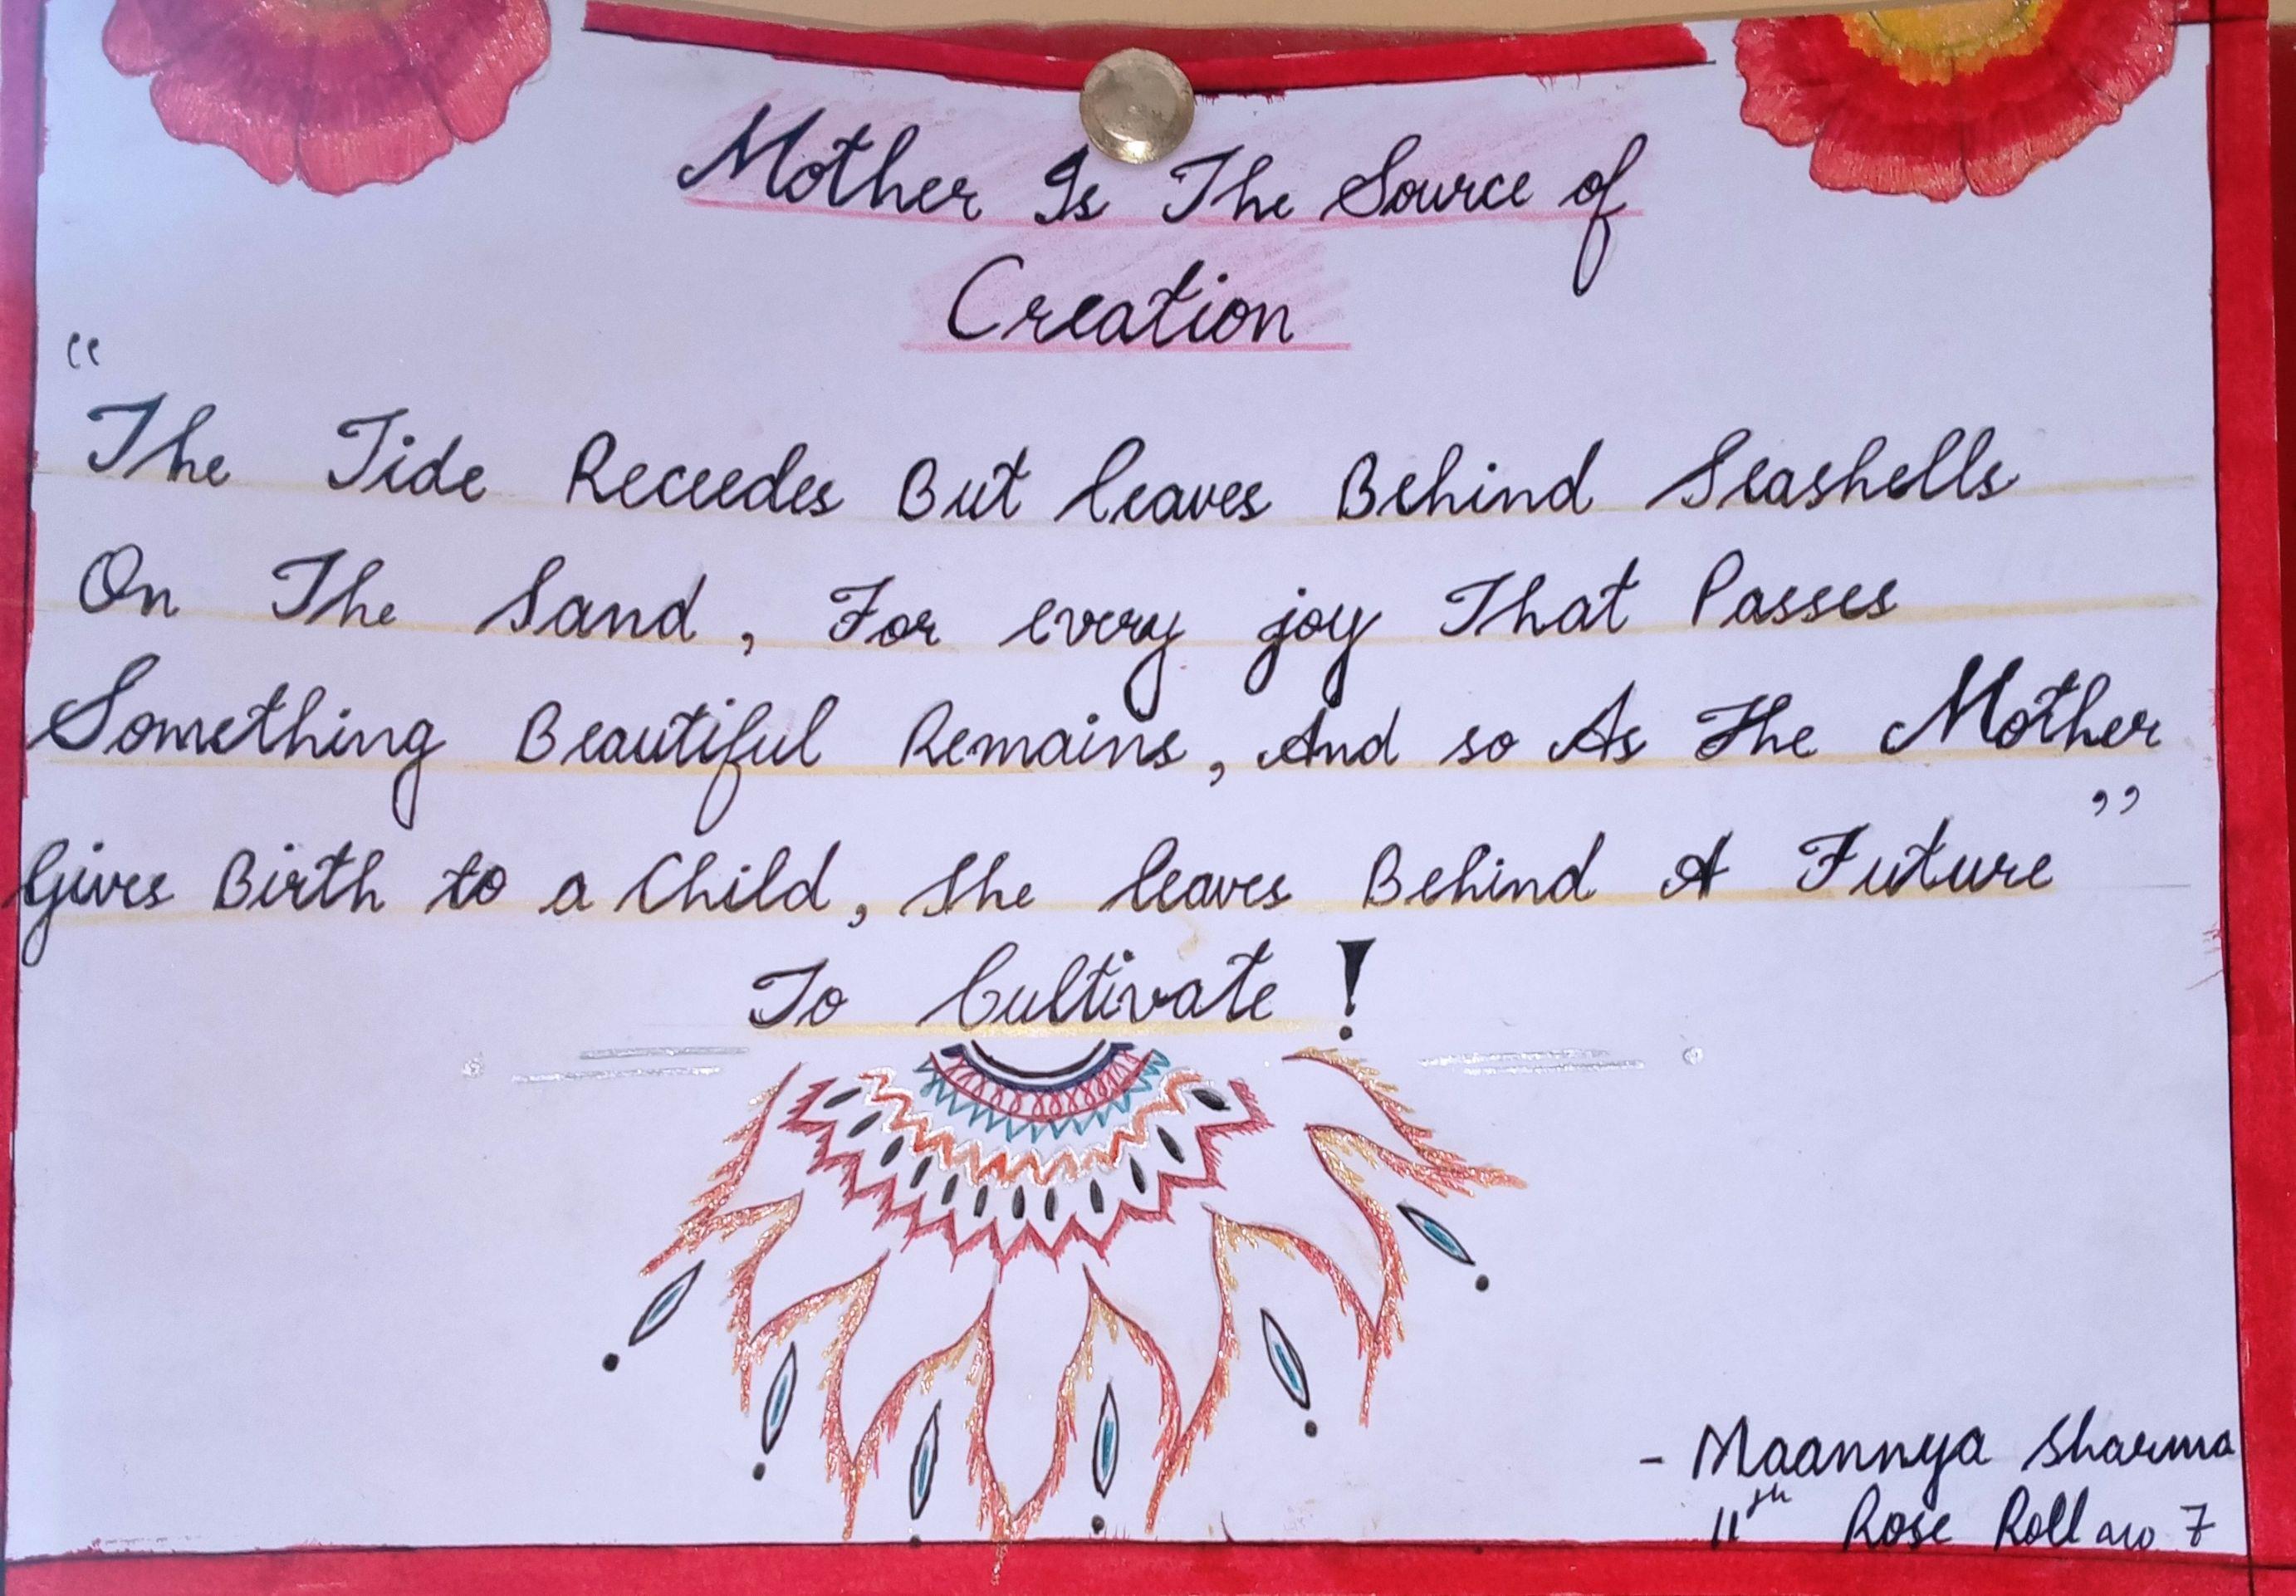 Mother Is The Source of
Creation
“
The Tide Receedes But leaves Behind Seashells
On The Sand, For every joy That Passes
Something Beautiful Remains, And so As The Mother
Gives Birth to a Child, She leaves Behind A Future”
To Cultivate!
- Maannya Sharma
11th Rose Roll no 7